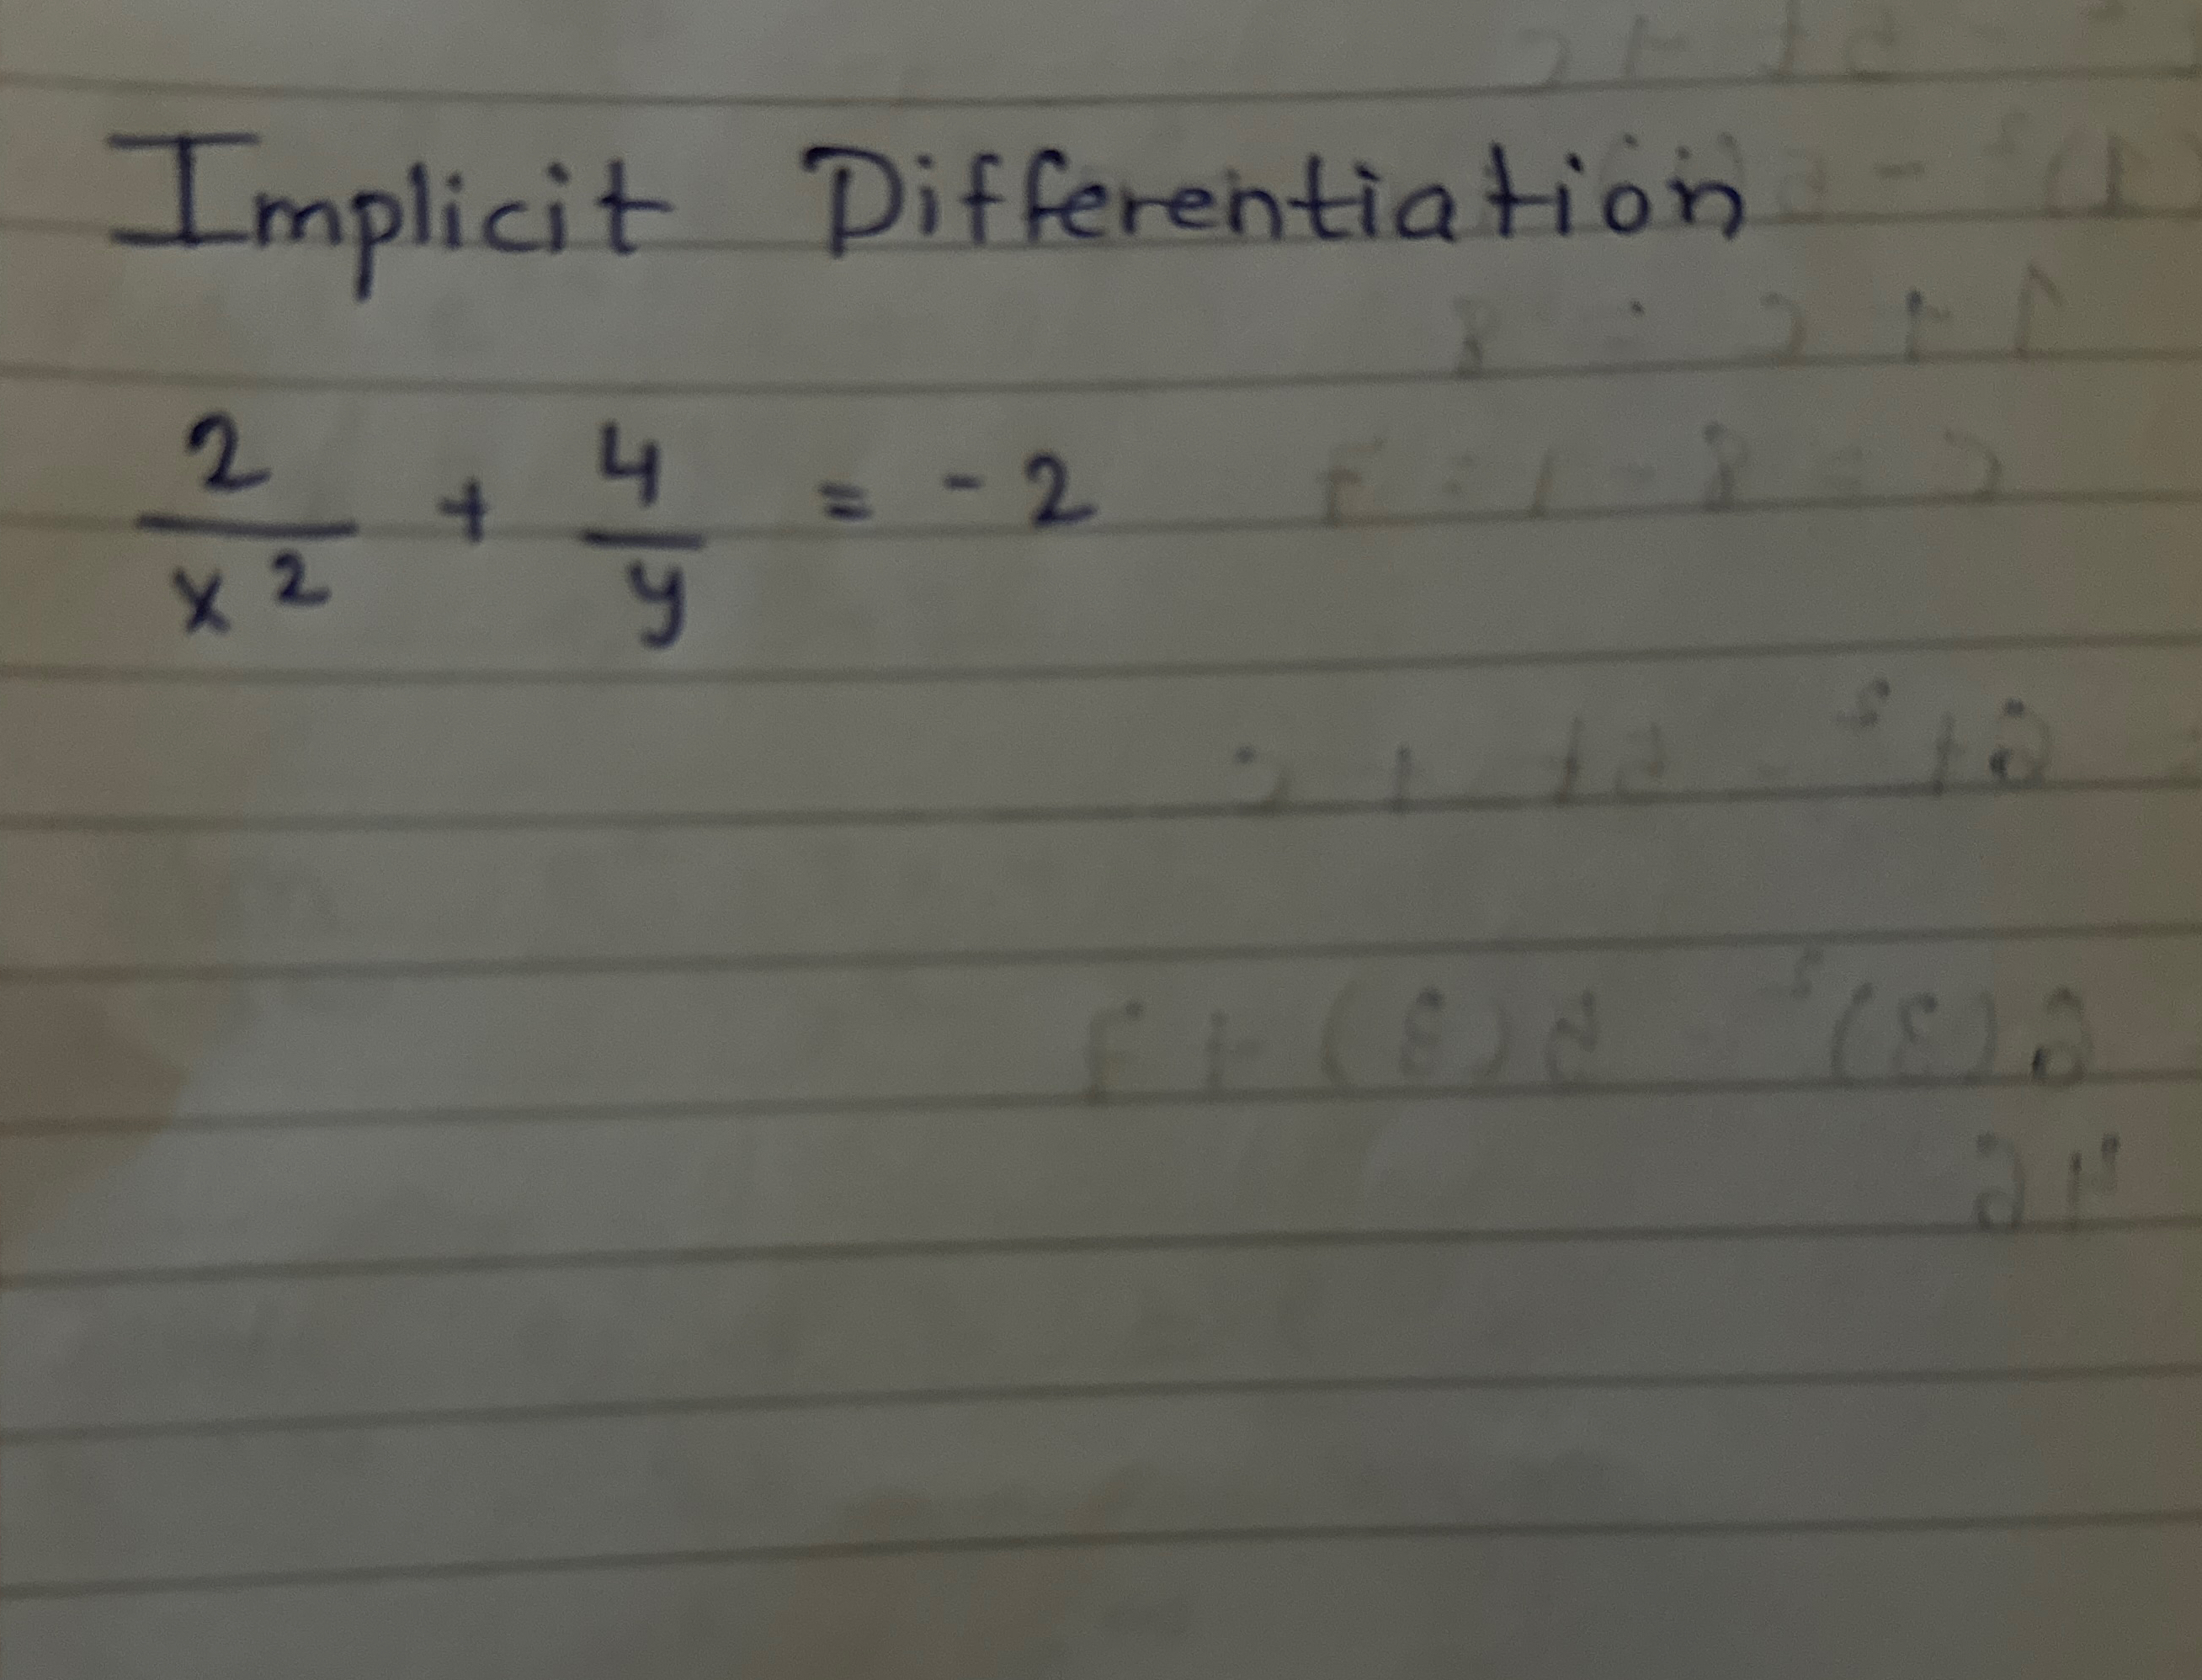 Implicit Differentiation
2/x² + 4/y = -2